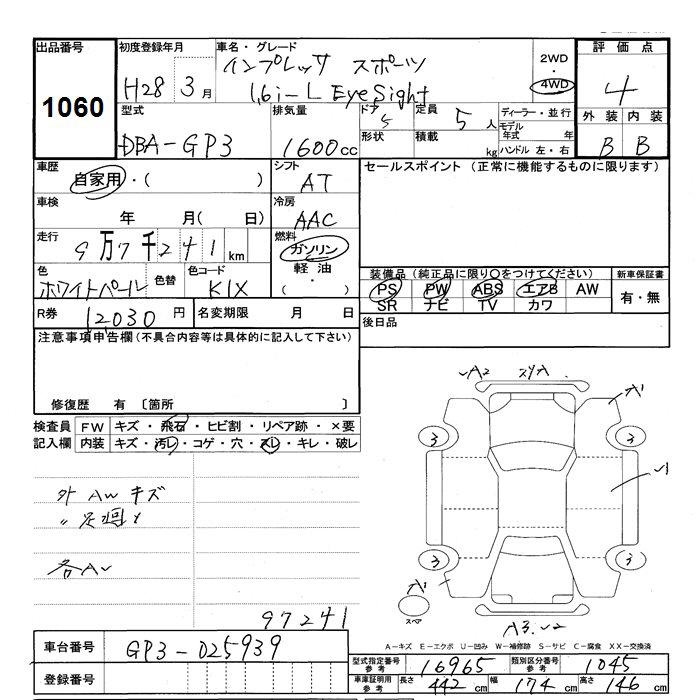 出品番号 初度登録年月 車名・グレード 評価点
インプレッサ スポーツ 2WD
1060 H28 3月 1.6i-L EyeSight ・4WD 4
型式 排気量 ドア 定員 ディーラー・並行 外装 内装
5 5人 モデル年式 年
DBA-GP3 1600cc 形状 積載 kg ハンドル 左・右 B B
車歴 シフト セールスポイント (正常に機能するものに限ります)
自家用・( ) AT
車検 冷房
年 月( 日) AAC
走行 燃料
9万7千241km ガソリン
色 色替 色コード 軽油 装備品(純正品に限り○をつけてください) 新車保証書
ホワイトパール K1X ・( ) PS PW ABS エアB AW 有・無
SR ナビ TV カワ
R券 12,030円 名変期限 月 日 後日品
注意事項申告欄(不具合内容等は具体的に記入して下さい)
修復歴 有 〔箇所 〕
A2 スリA A1
検査員 FW キズ・飛石・ヒビ割・リペア跡・×要
記入欄 内装 キズ・汚レ・コゲ・穴・スレ・キレ・破レ
3 3
外 AW キズ
〃 足廻サ
3 3
各AU
スペア
97241
A3.U2
A-キズ E-エクボ U-凹み W-補修跡 S-サビ C-腐食 XX-交換済
車台番号 GP3-025939
型式指定番号 参考 16965 類別区分番号 参考 1045
登録番号
車庫証明用 参考 長さ 442cm 幅 174cm 高さ 146cm